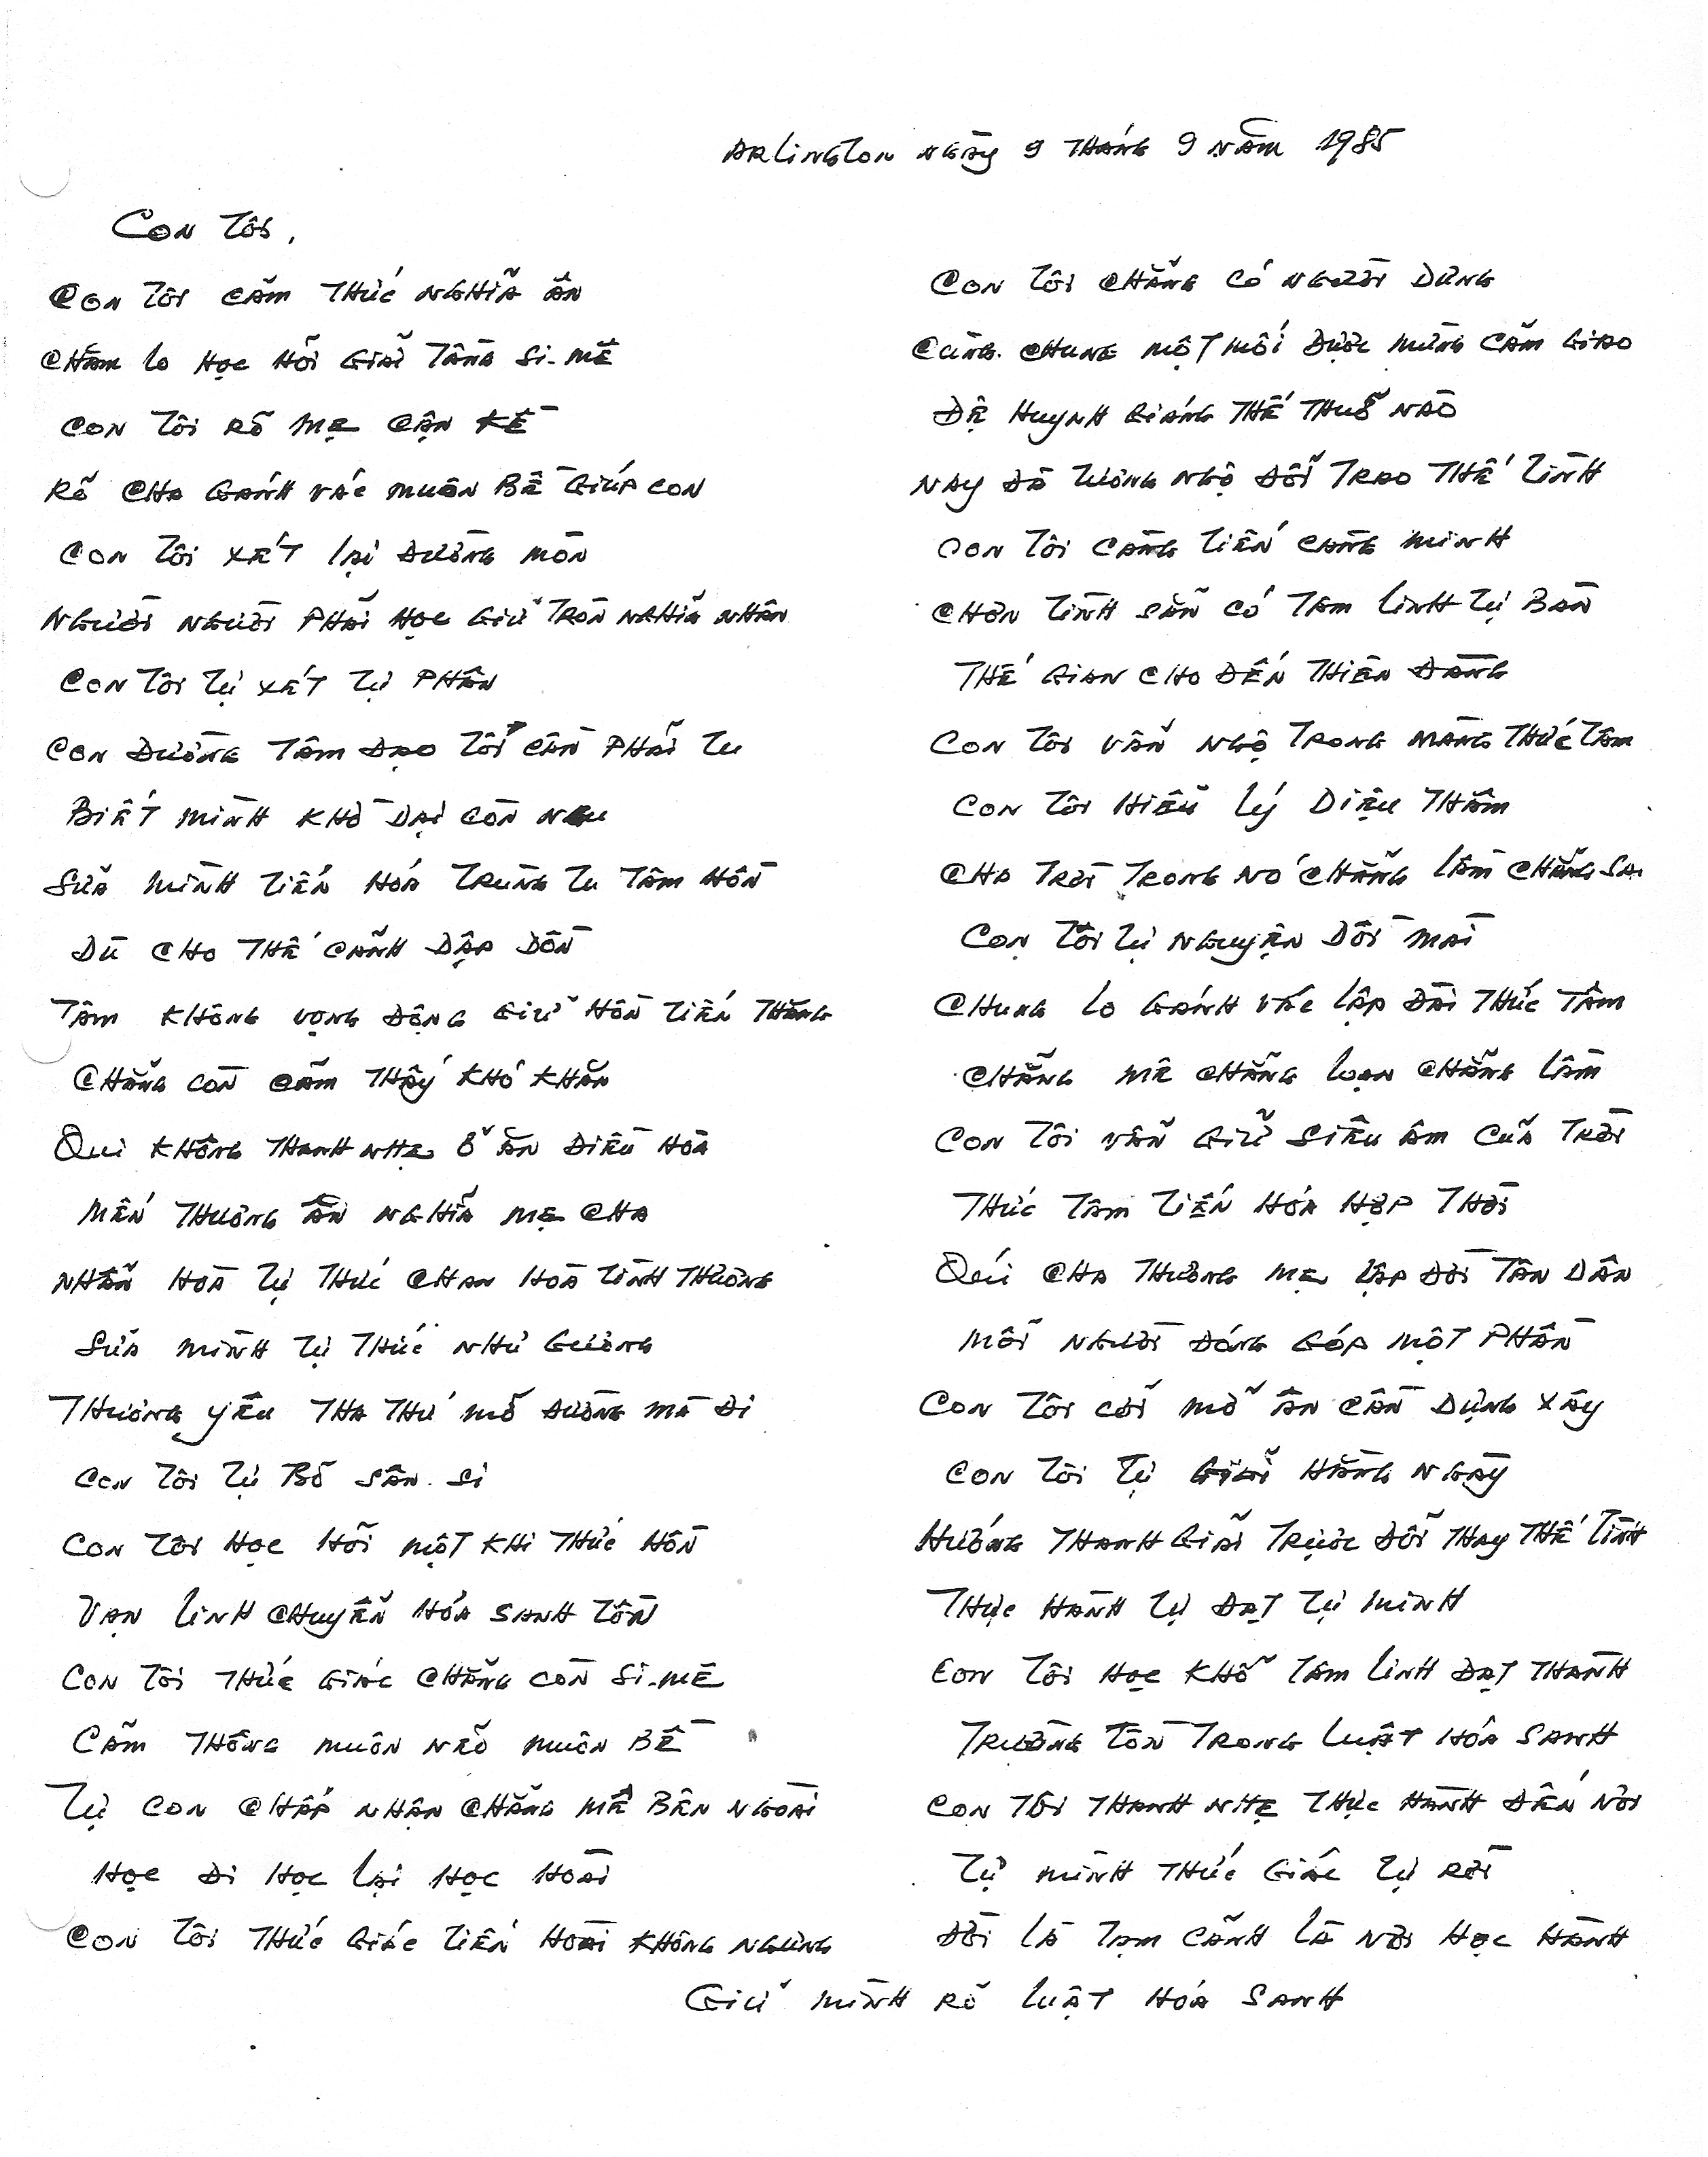 Arlington ngày 9 tháng 9 năm 1985
Con tôi,
Con tôi cãm thức nghĩa ân
Chăm lo học hõi giãi tầng si-mê
Con tôi rõ mẹ cận kề
Rõ cha gánh vác muôn bề giúp con
Con tôi xét lại đường mòn
Người người phãi học giữ tròn nghĩa nhân
Con tôi tự xét tự phân
Con đường tâm đạo tôi cần phãi tu
Biết mình khờ dại còn ngu
Sữa mình tiến hóa trùng tu tâm hồn
Dù cho thế cãnh dập dồn
Tâm không vọng động giữ hồn tiến thăng
Chẵng còn cãm thấy khó khăn
Qui không thanh nhẹ ỡ ăn điều hòa
Mến thương ân nghĩa mẹ cha
Nhẫn hòa tự thức chan hòa tình thương
Sữa mình tự thức như gương
Thương yêu tha thứ mỡ đường mà đi
Con tôi tự bõ sân si
Con tôi học hõi một khi thức hồn
Vạn linh chuyễn hóa sanh tồn
Con tôi thức giác chẵng còn si-mê
Cãm thông muôn nẽo muôn bề
Tự con chấp nhận chẵng mê bên ngoài
Học đi học lại học hoài
Con tôi thức giác tiến hoài không ngừng
Con tôi chẵng có người dưng
Cùng chung một mối được mừng cãm giao
Đệ huynh giáng thế thuỡ nào
Nay đà tương ngộ đỗi trao thế tình
Con tôi càng tiến càng minh
Chơn tình sẵn có tâm linh tự bàn
Thế gian cho đến thiên đàng
Con tôi vẫn ngộ trong màng thức tâm
Con tôi hiễu lý diệu thâm
Cha trời trong nó chẵng lầm chẵng sai
Con tôi tự nguyện dồi mài
Chung lo gánh vác lập đài thức tâm
Chẵng mê chẵng loạn chẵng lầm
Con tôi vẫn giữ siêu âm cũa trời
Thức tâm tiến hóa hợp thời
Quí cha thương mẹ lập đời tân dân
Mỗi người đóng góp một phần
Con tôi cỡi mỡ ân cần dựng xây
Con tôi tự giãi hằng ngày
Hướng thanh giãi trược đỗi thay thế tình
Thực hành tự đạt tự minh
Con tôi học khỗ tâm linh đạt thành
Trường tồn trong luật hóa sanh
Con tôi thanh nhẹ thực hành đến nơi
Tự mình thức giác tự rời
Đời là tạm cãnh là nơi học hành
Giữ mình rõ luật hóa sanh